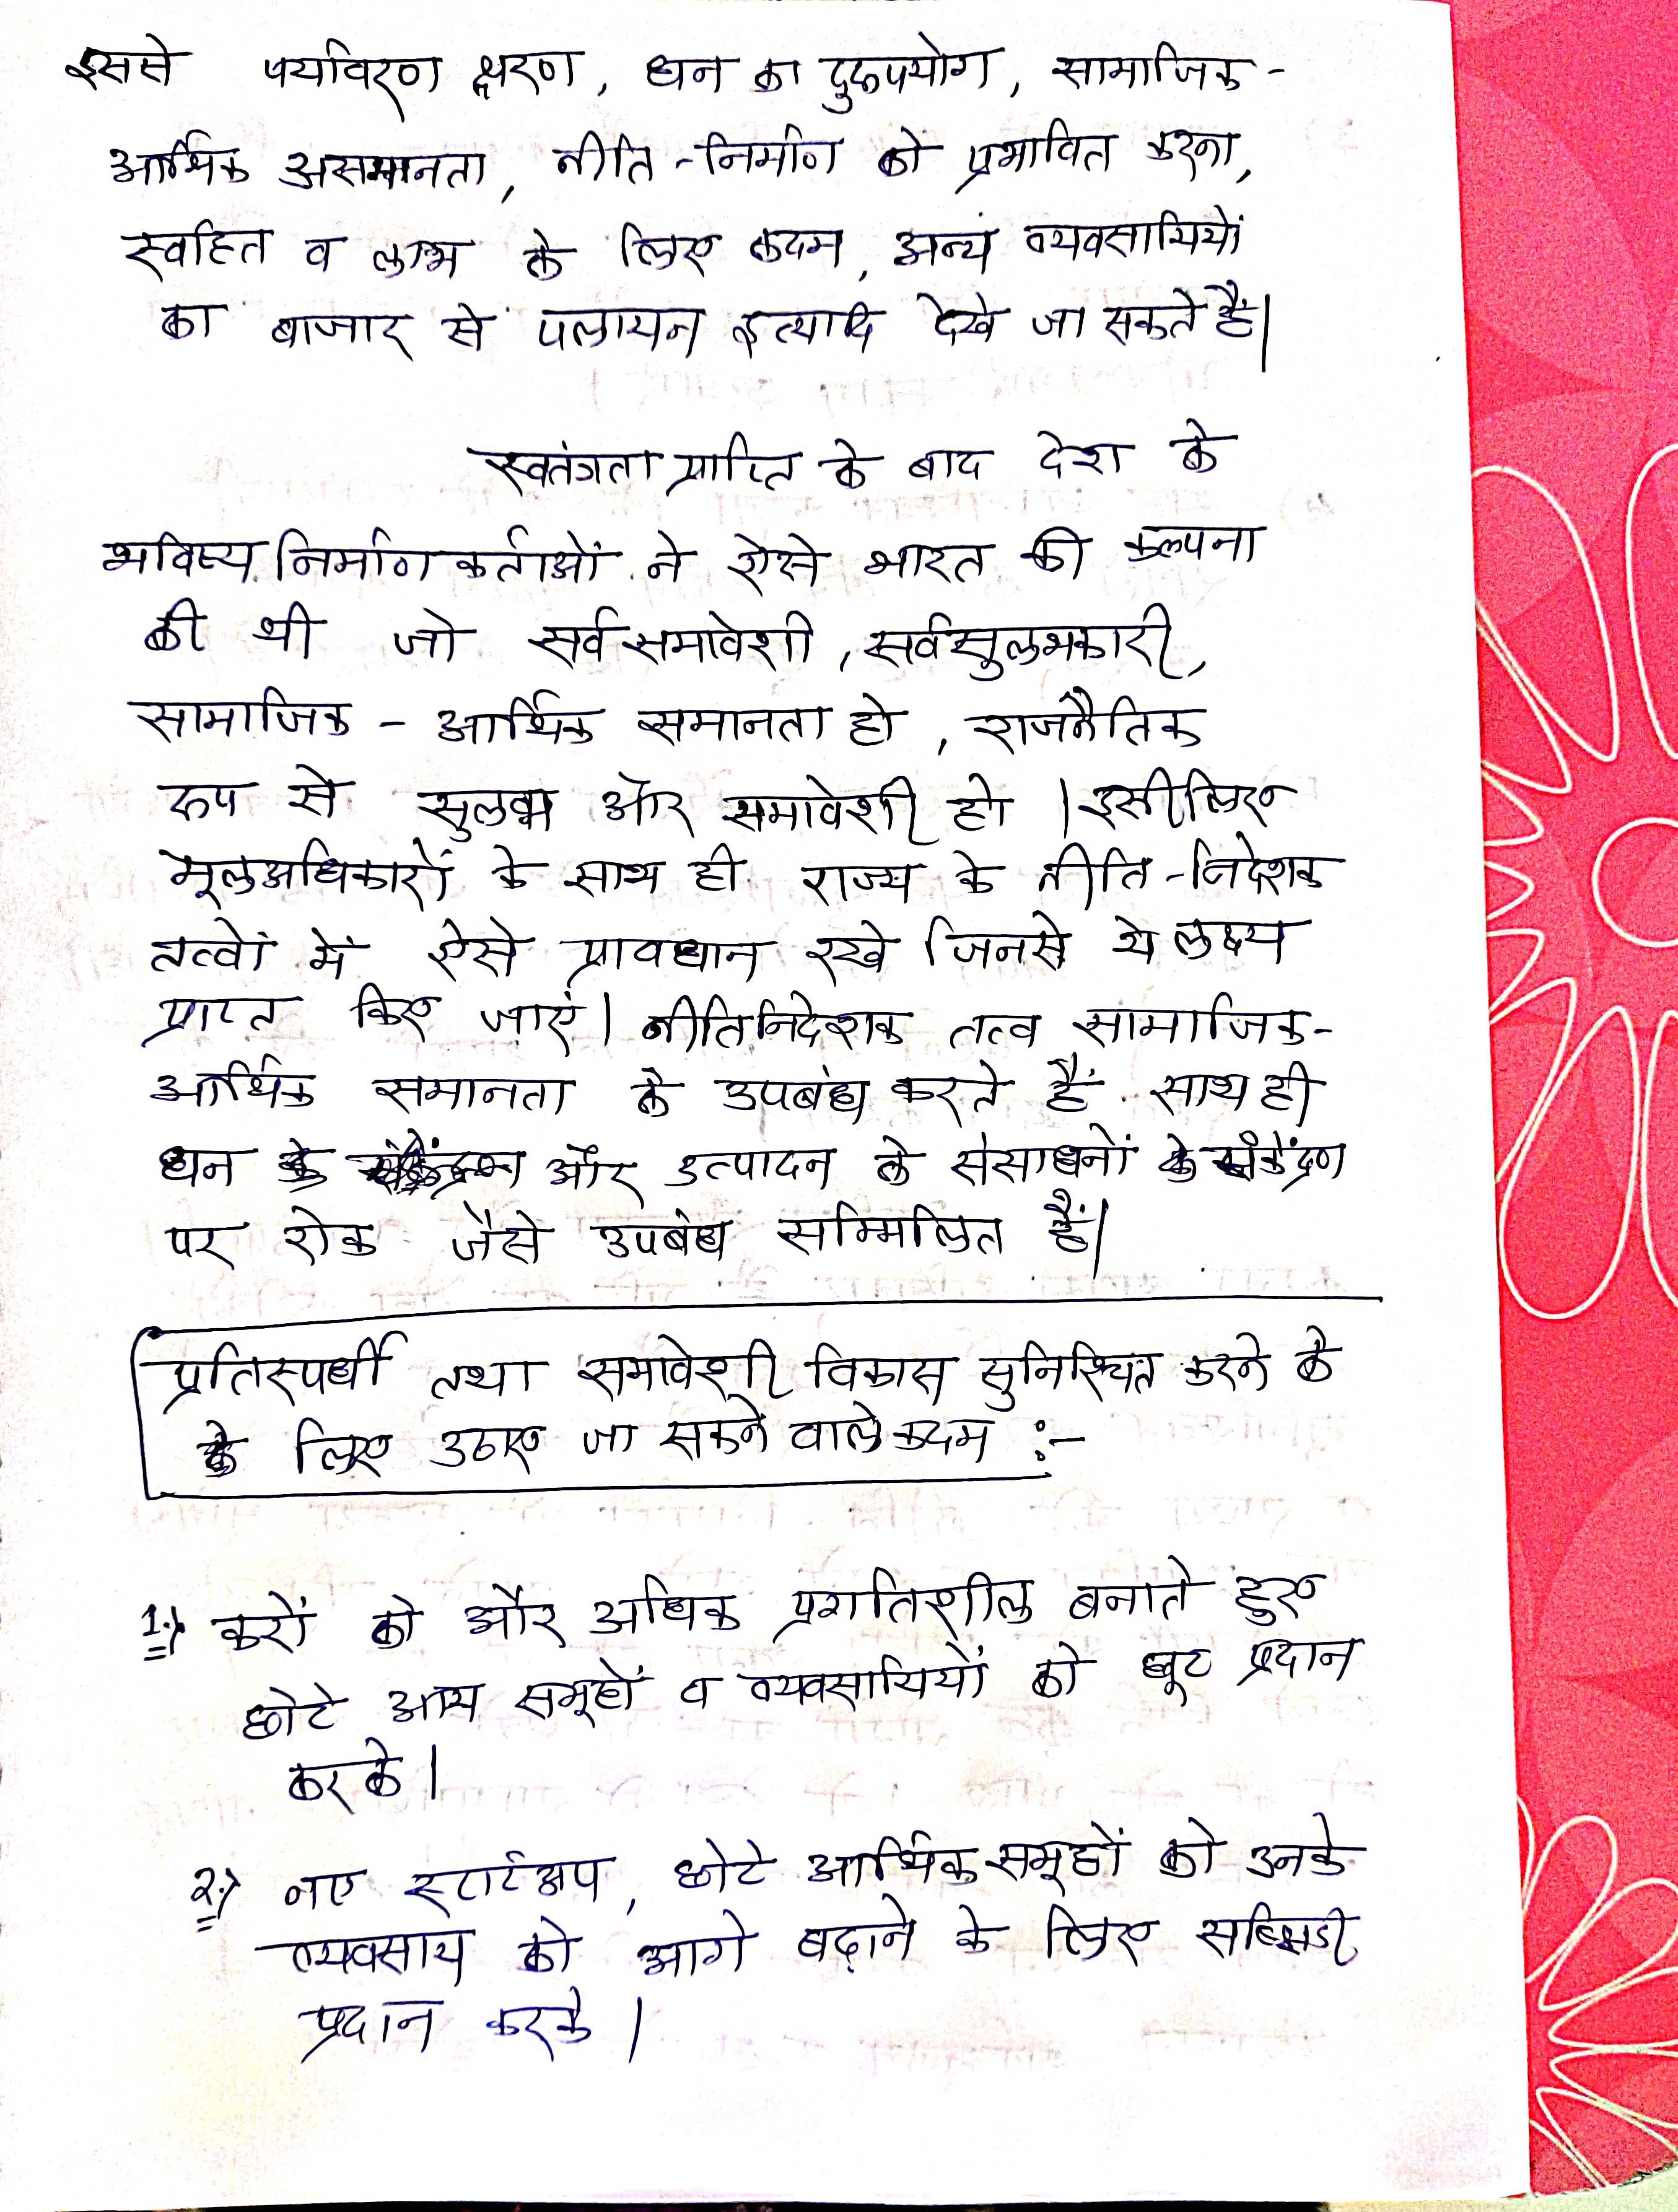 इससे पर्यावरण क्षरण, धन का दुरुपयोग, सामाजिक-
आर्थिक असमानता, नीति-निर्माण को प्रभावित करना,
स्वहित व लाभ के लिए कदम, अन्य व्यवसायियों
का बाजार से पलायन इत्यादि देखे जा सकते हैं।
स्वतंत्रता प्राप्ति के बाद देश के
भविष्य निर्माणकर्ताओं ने ऐसे भारत की कल्पना
की थी जो सर्वसमावेशी, सर्वसुलभकारी,
सामाजिक - आर्थिक समानता हो, राजनैतिक
रूप से सुलभ और समावेशी हो। इसीलिए
मूलअधिकारों के साथ ही राज्य के नीति-निदेशक
तत्वों में ऐसे प्रावधान रखे जिनसे ये लक्ष्य
प्राप्त किए जाएं। नीतिनिदेशक तत्व सामाजिक-
आर्थिक समानता के उपबंध करते हैं साथ ही
धन के और उत्पादन के संसाधनों के संकेंद्रण
पर रोक जैसे उपबंध सम्मिलित हैं।
प्रतिस्पर्धी तथा समावेशी विकास सुनिश्चित करने के
के लिए उठाए जा सकने वाले कदम :-
1.) करों को और अधिक प्रगतिशील बनाते हुए
छोटे आय समूहों व व्यवसायियों को छूट प्रदान
करके।
2.) नए स्टार्टअप, छोटे आर्थिक समूहों को उनके
व्यवसाय को आगे बढ़ाने के लिए सब्सिडी
प्रदान करके।